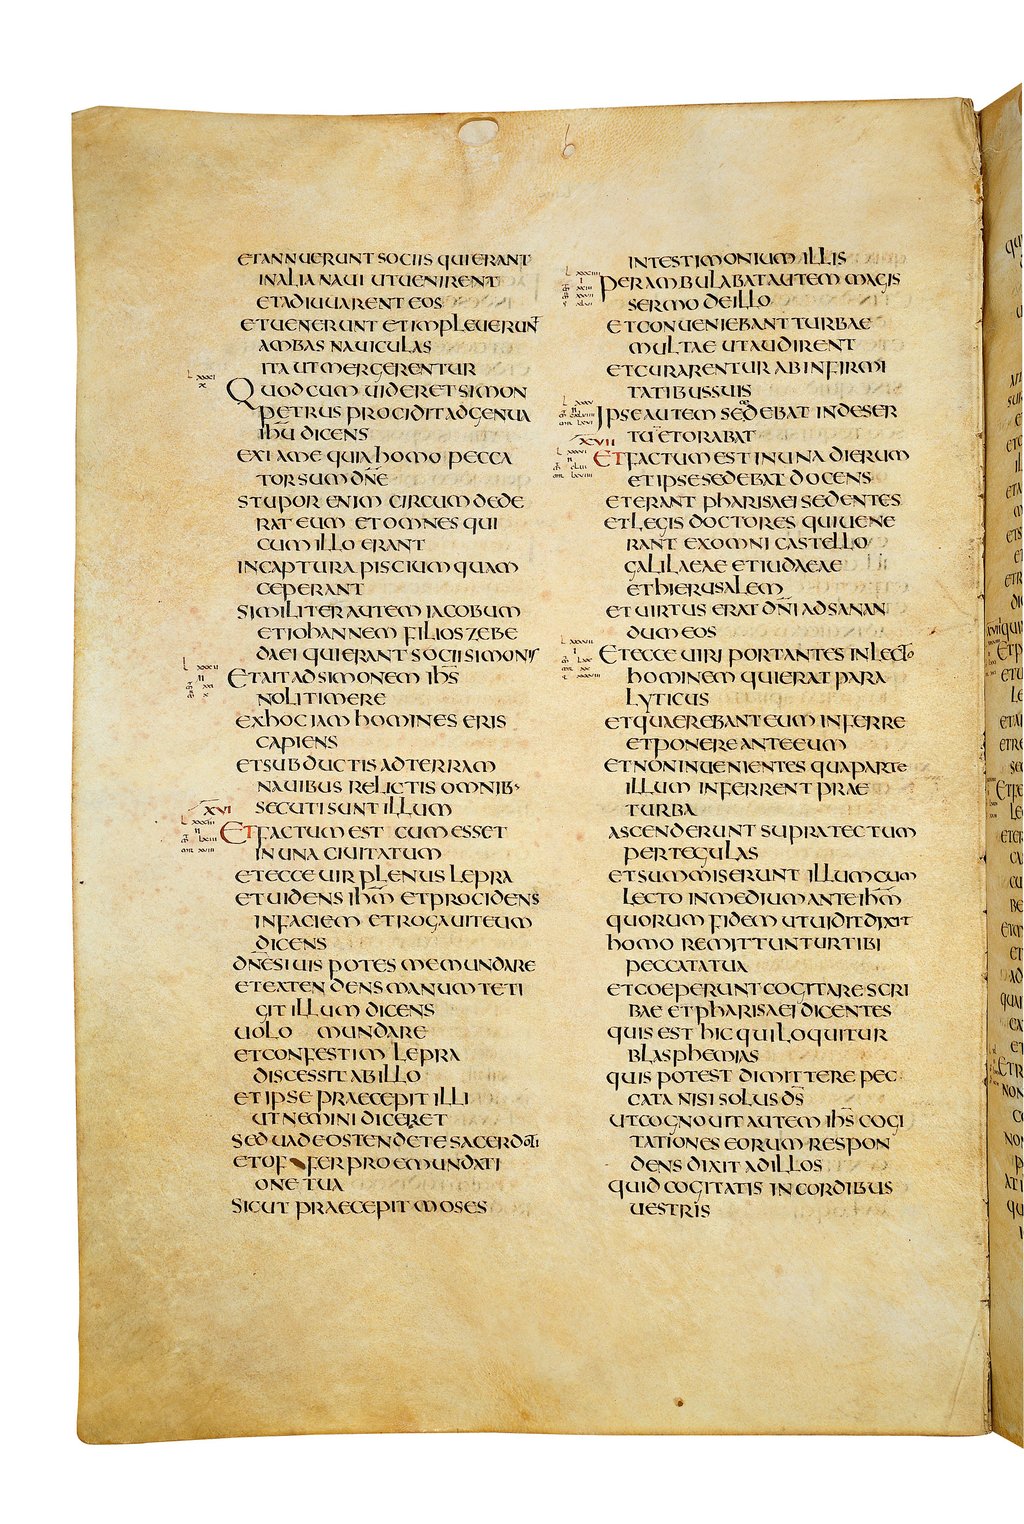 b
ETANNUERUNT SOCIIS QUI ERANT
IN ALIA NAUI UT UENIRENT
ET ADIUUARENT EOS
ET UENERUNT ET IMPLEUERUNT
AMBAS NAUICULAS
ITA UT MERGERENTUR
QUOD CUM UIDERET SIMON
PETRUS PROCIDIT AD GENUA
IHU DICENS
EXI A ME QUIA HOMO PECCA
TOR SUM DNE
STUPOR ENIM CIRCUM DEDE
RAT EUM ET OMNES QUI
CUM ILLO ERANT
IN CAPTURA PISCIUM QUAM
CEPERANT
SIMILITER AUTEM IACOBUM
ET IOHANNEM FILIOS ZEBE
DAEI QUI ERANT SOCII SIMONIS
ET AIT AD SIMONEM IHS
NOLI TIMERE
EX HOC IAM HOMINES ERIS
CAPIENS
ET SUBDUCTIS AD TERRAM
NAUIBUS RELICTIS OMNIB·
SECUTI SUNT ILLUM
XVI
ET FACTUM EST CUM ESSET
IN UNA CIUITATUM
ET ECCE UIR PLENUS LEPRA
ET UIDENS IHM ET PROCIDENS
IN FACIEM ET ROGAUIT EUM
DICENS
DNE SI UIS POTES ME MUNDARE
ET EXTENDENS MANUM TETI
GIT ILLUM DICENS
UOLO MUNDARE
ET CONFESTIM LEPRA
DISCESSIT AB ILLO
ET IPSE PRAECEPIT ILLI
UT NEMINI DICERET
SED UADE OSTENDE TE SACERDOTI
ET OFFER PRO EMUNDATI
ONE TUA
SICUT PRAECEPIT MOSES
IN TESTIMONIUM ILLIS
PERAMBULABAT AUTEM MAGIS
SERMO DE ILLO
ET CONUENIEBANT TURBAE
MULTAE UT AUDIRENT
ET CURARENTUR AB INFIRMI
TATIBUS SUIS
IPSE AUTEM SEDEBAT IN DESER
TU ET ORABAT
XVII
ET FACTUM EST IN UNA DIERUM
ET IPSE SEDEBAT DOCENS
ET ERANT PHARISAEI SEDENTES
ET LEGIS DOCTORES QUI UENE
RANT EX OMNI CASTELLO
GALILAEAE ET IUDAEAE
ET HIERUSALEM
ET UIRTUS ERAT DNI AD SANAN
DUM EOS
ET ECCE UIRI PORTANTES IN LECTO
HOMINEM QUI ERAT PARA
LYTICUS
ET QUAEREBANT EUM INFERRE
ET PONERE ANTE EUM
ET NON INUENIENTES QUA PARTE
ILLUM INFERRENT PRAE
TURBA
ASCENDERUNT SUPRA TECTUM
PER TEGULAS
ET SUMMISERUNT ILLUM CUM
LECTO IN MEDIUM ANTE IHM
QUORUM FIDEM UT UIDIT DIXIT
HOMO REMITTUNTUR TIBI
PECCATA TUA
ET COEPERUNT COGITARE SCRI
BAE ET PHARISAEI DICENTES
QUIS EST HIC QUI LOQUITUR
BLASPHEMIAS
QUIS POTEST DIMITTERE PEC
CATA NISI SOLUS DS
UT COGNOUIT AUTEM IHS COGI
TATIONES EORUM RESPON
DENS DIXIT AD ILLOS
QUID COGITATIS IN CORDIBUS
UESTRIS